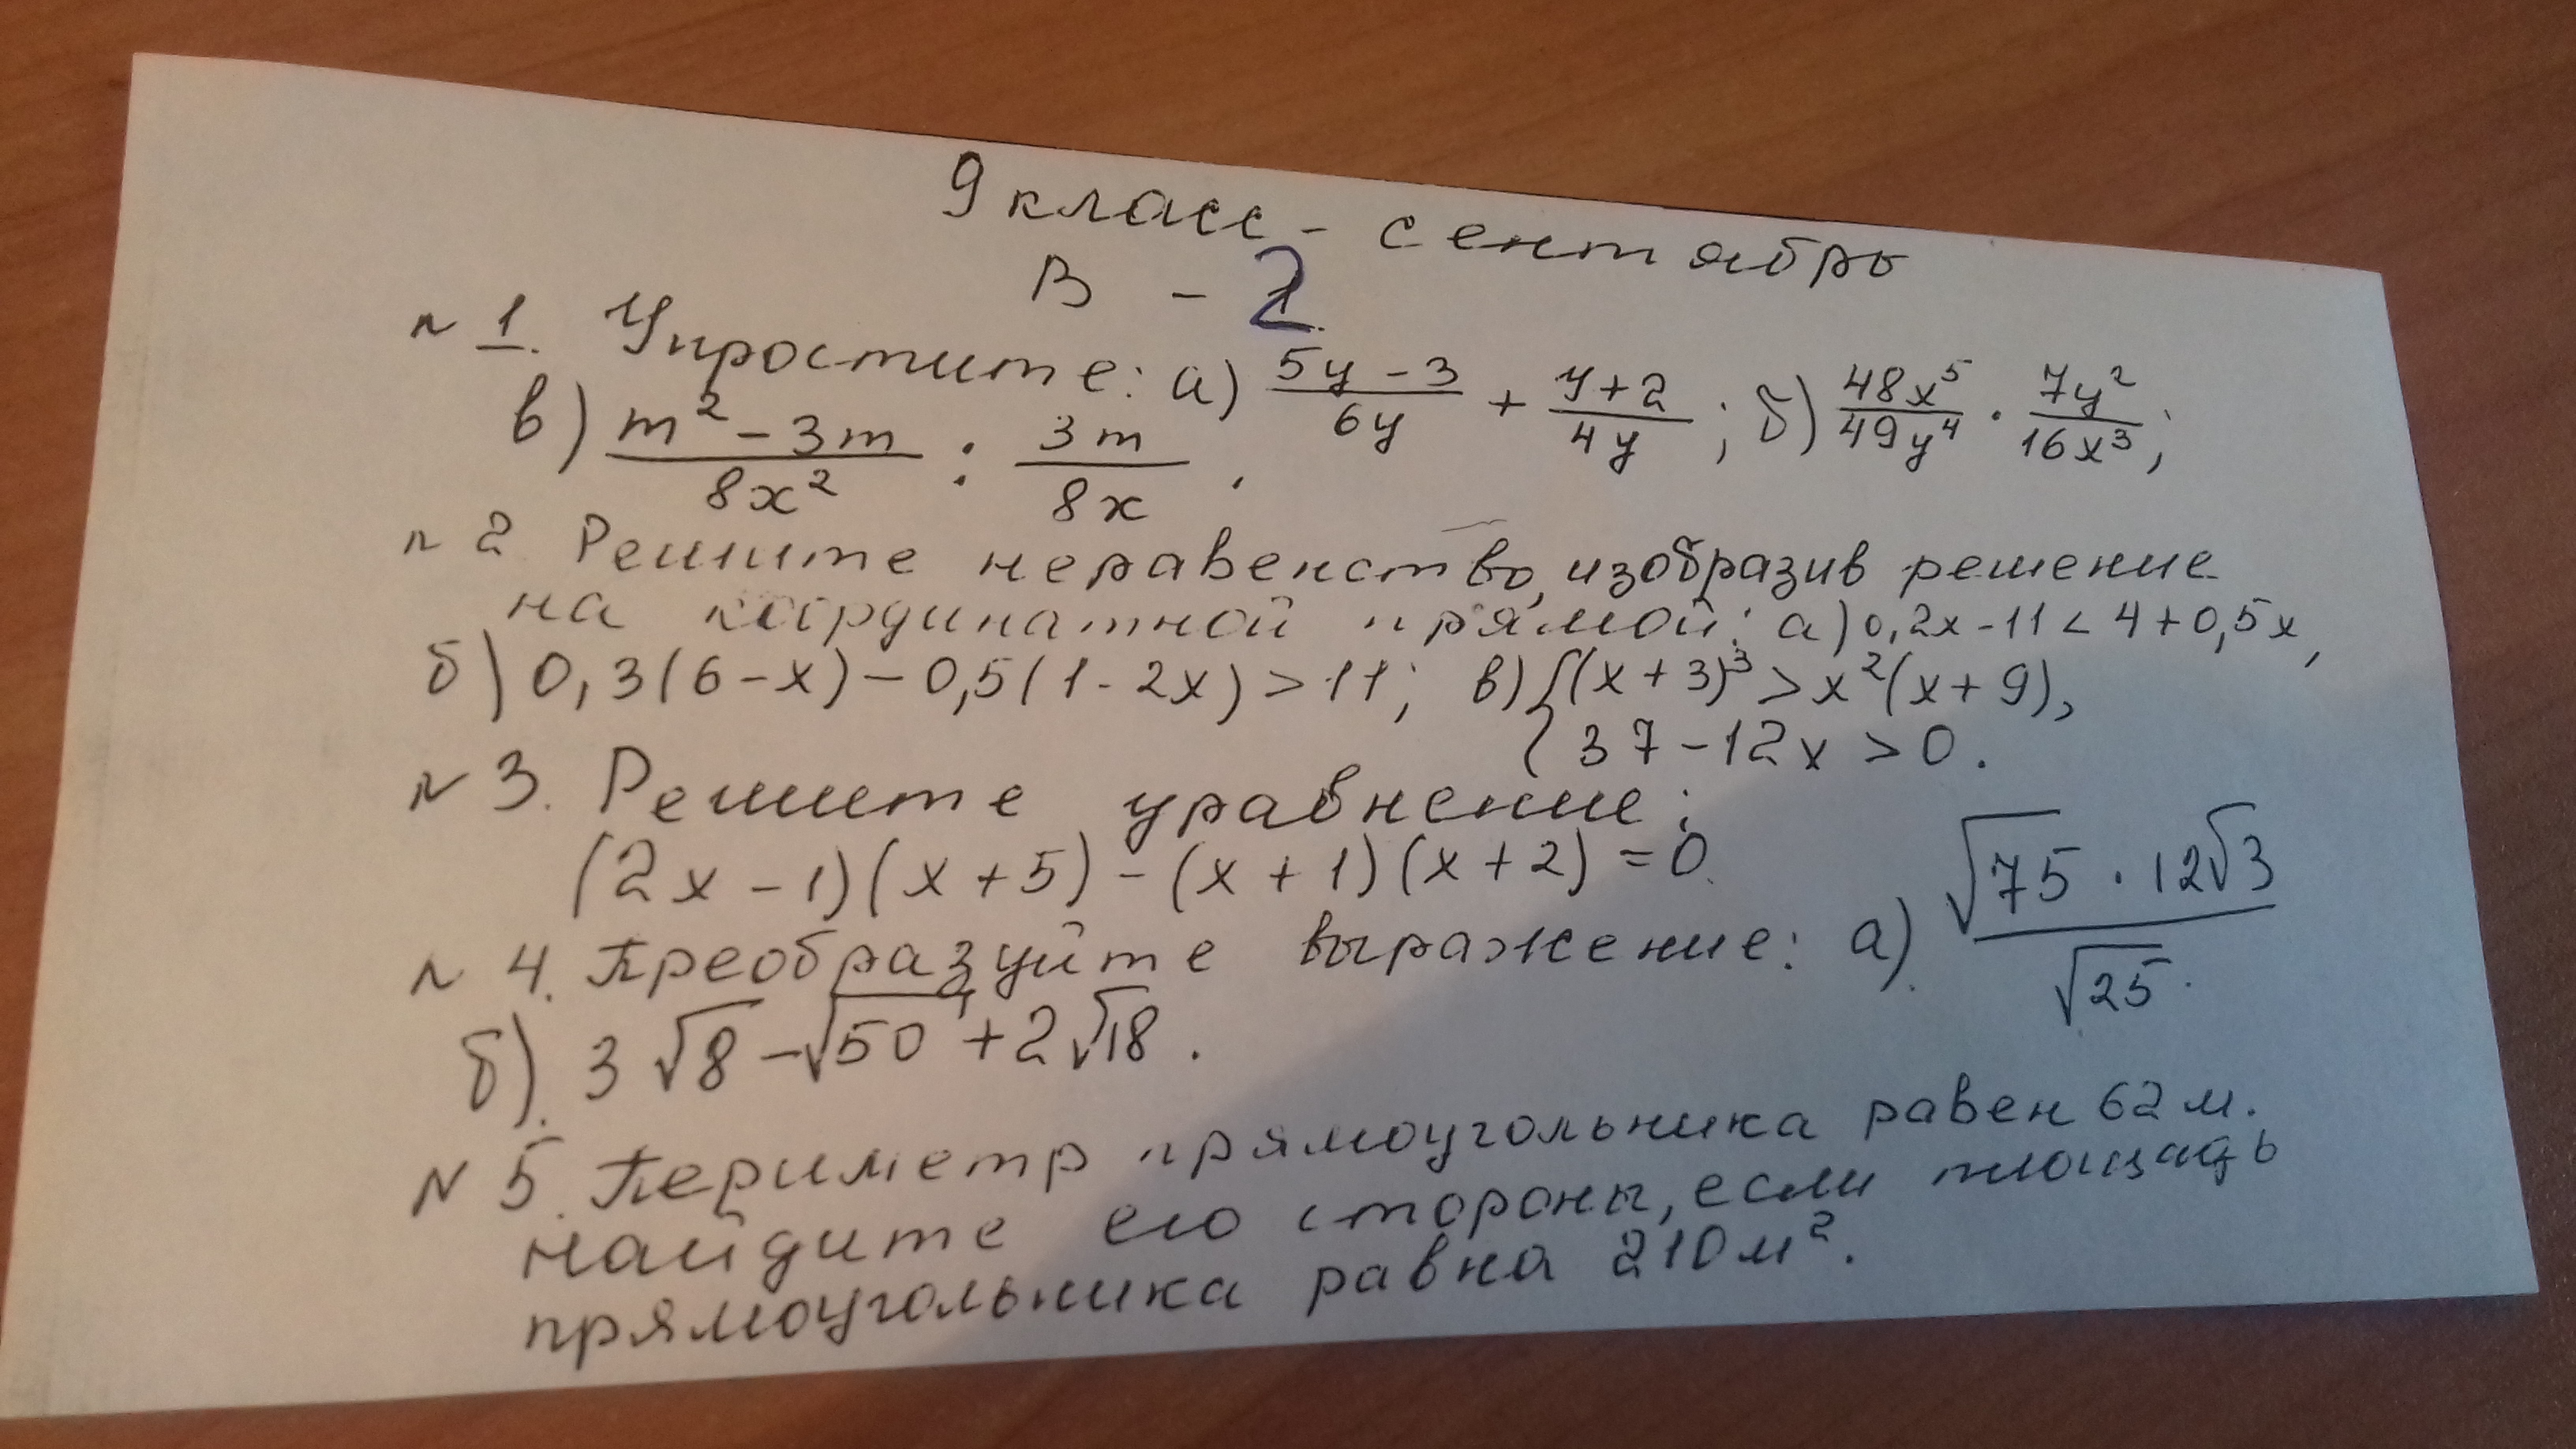 9 класс - сентябрь
В - 2
№ 1. Упростите: а) (5y - 3)/(6y) + (y + 2)/(4y); б) (48x⁵)/(49y⁴) · (7y²)/(16x³);
в) (m² - 3m)/(8x²) : (3m)/(8x).
№ 2 Решите неравенство, изобразив решение
на координатной прямой: а) 0,2x - 11 < 4 + 0,5x,
б) 0,3(6 - x) - 0,5(1 - 2x) > 11; в) { (x + 3)³ > x²(x + 9),
37 - 12x > 0.
№ 3. Решите уравнение:
(2x - 1)(x + 5) - (x + 1)(x + 2) = 0.
№ 4. Преобразуйте выражение: а) (√75 · 12√3)/√25.
б). 3√8 - √50 + 2√18.
№ 5. Периметр прямоугольника равен 62 м.
найдите его стороны, если площадь
прямоугольника равна 210 м².